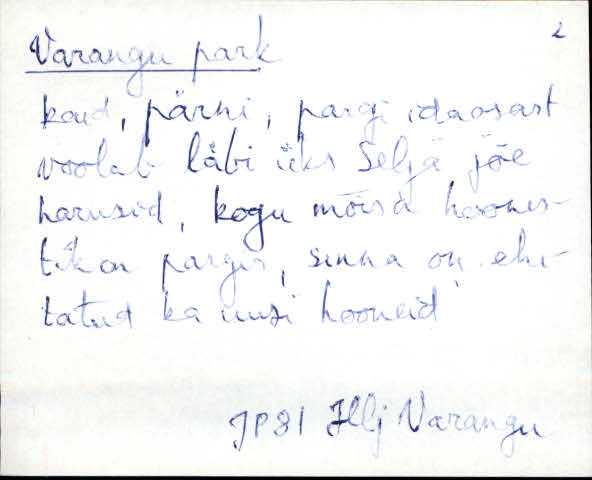 2
Varangu park
kaid, pärni, pargi idaosast
voolab läbi üks Selja jõe
harusid, kogu mõisa hoones-
tik on pargis, sinna on ehi-
tatud ka uusi hooneid
JP81 Hlj Varangu